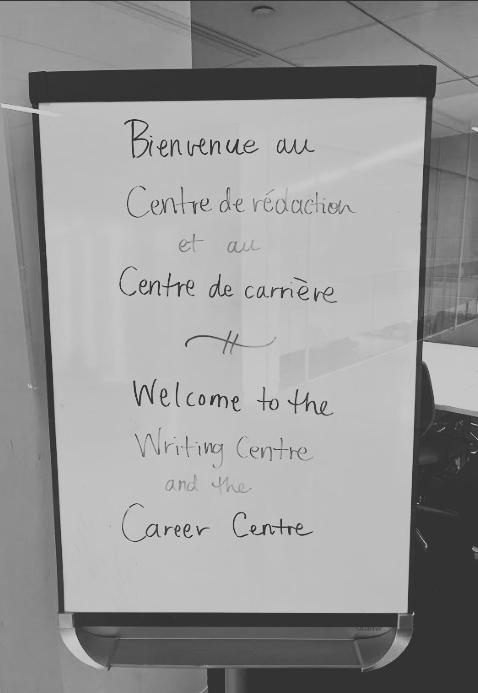 Bienvenue au
Centre de rédaction
et au
Centre de carrière
Welcome to the
Writing Centre
and the
Career Centre